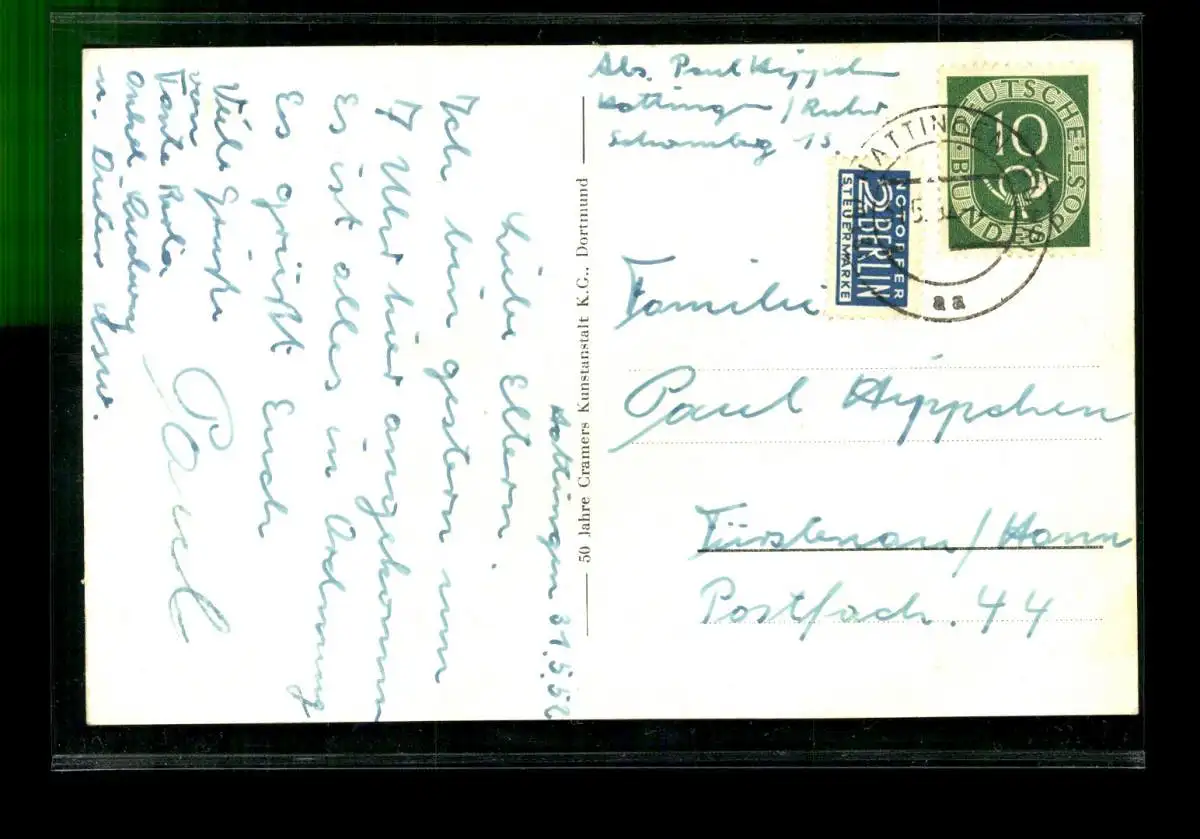 Abs. Paul Hippchen
Hattingen/Ruhr
Schomberg 13.
DEUTSCHE BUNDESPOST
10
HATTINGEN
aa
NOTOPFER
2 BERLIN
STEUERMARKE
Familie
Paul Hippchen
Fürstenau/Hann
Postfach. 44
50 Jahre Cramers Kunstanstalt K.G., Dortmund
Hattingen 31.5.52
Liebe Eltern.
Ich bin gestern um
17 Uhr hier angekommen
Es ist alles in Ordnung
Es grüßt Euch
Paul
Viele Grüße
von
Tante
Onkel Ludwig
u.